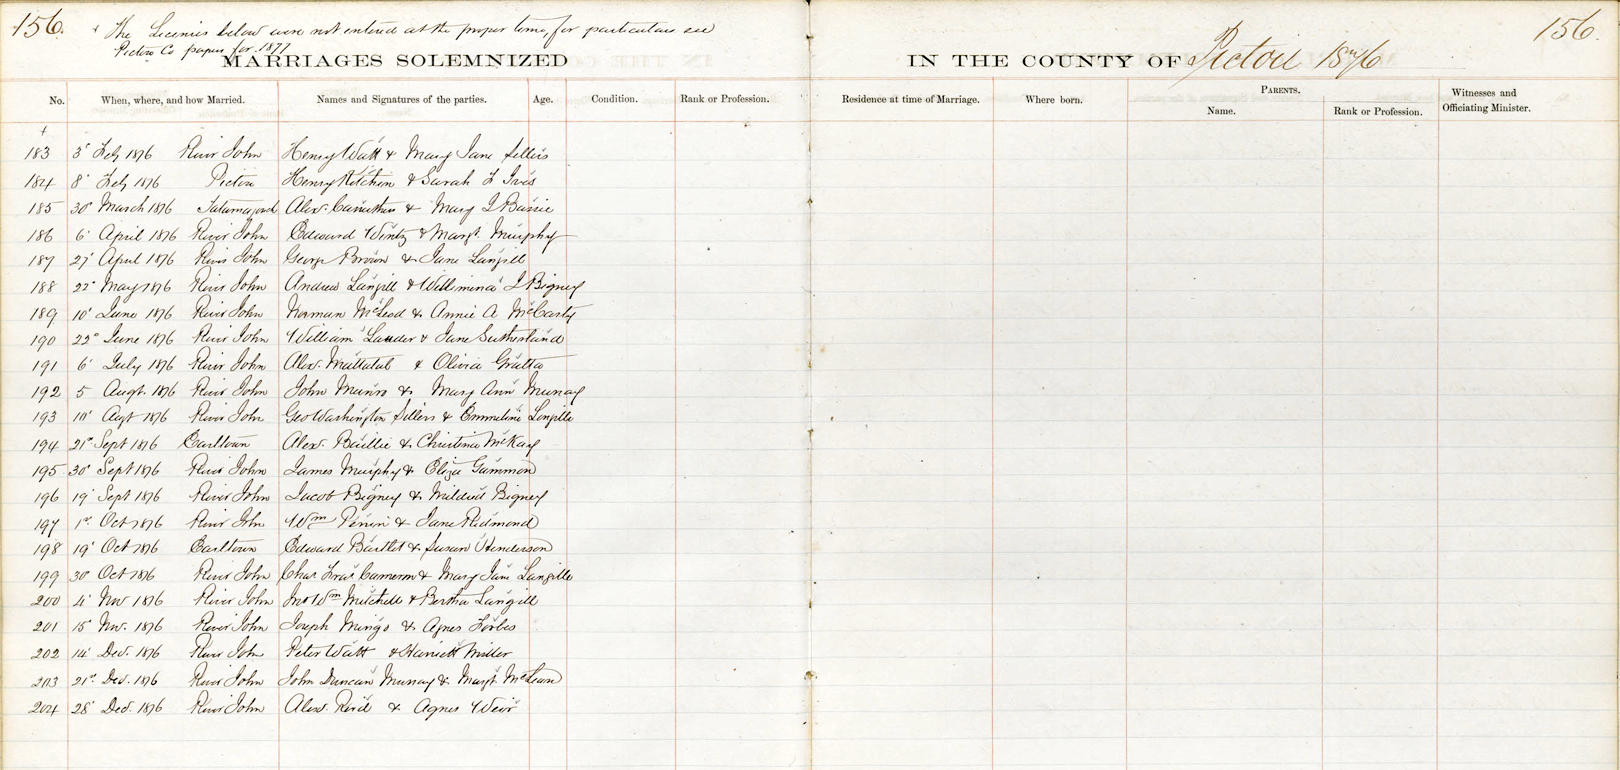 156. + The Licenses below were not entered at the proper time, for particulars see
Pictou Co papers for 1877
MARRIAGES SOLEMNIZED IN THE COUNTY OF Pictou 1876 156.
No. When, where, and how Married. Names and Signatures of the parties. Age. Condition. Rank or Profession. Residence at time of Marriage. Where born. PARENTS. Name. Rank or Profession. Witnesses and Officiating Minister.
+
183 3 Feby 1876 River John Henry Watt & Mary Jane Sellers
184 8 Feby 1876 Pictou Henry Kitchen & Sarah F Ives
185 30 March 1876 Tatamagouch Alex. Carruthers & Mary I
186 6 April 1876 River John Edward Wentz & Margt. Murphy
187 27 April 1876 River John George Brown & Jane Langill
188 22 May 1876 River John Andrew Langill & Willimina J Bigney
189 10 June 1876 River John Norman McLeod & Annie A McCarty
190 22 June 1876 River John William Lauder & Jane Sutherland
191 6 July 1876 River John Alex. Mattatal & Olivia Gratto
192 5 Augt. 1876 River John John Munro & Mary Ann Murray
193 10 Augt 1876 River John Geo Washington Sellers & Emmeline Langille
194 21st Sept 1876 Earltown Alex. Baillie & Christina McKay
195 30 Sept 1876 River John James Murphy & Eliza Gammon
196 19 Sept 1876 River John Jacob Bigney & Mildred Bigney
197 1st. Oct 1876 River John Wm Perrin & Jane Redmond
198 19 Oct 1876 Earltown Edward Bartlet & Susan Henderson
199 30 Oct 1876 River John Chas Fras Cameron & Mary Jane Langille
200 4 Nov 1876 River John Jno Wm Mitchell & Bertha Langill
201 15 Nov. 1876 River John Joseph Mingo & Agnes Forbes
202 14 Dec. 1876 River John Peter Watt & Harriett Miller
203 21st. Dec. 1876 River John John Duncan Murray & Margt. McLean
204 28 Dec. 1876 River John Alex. Reid & Agnes Weir